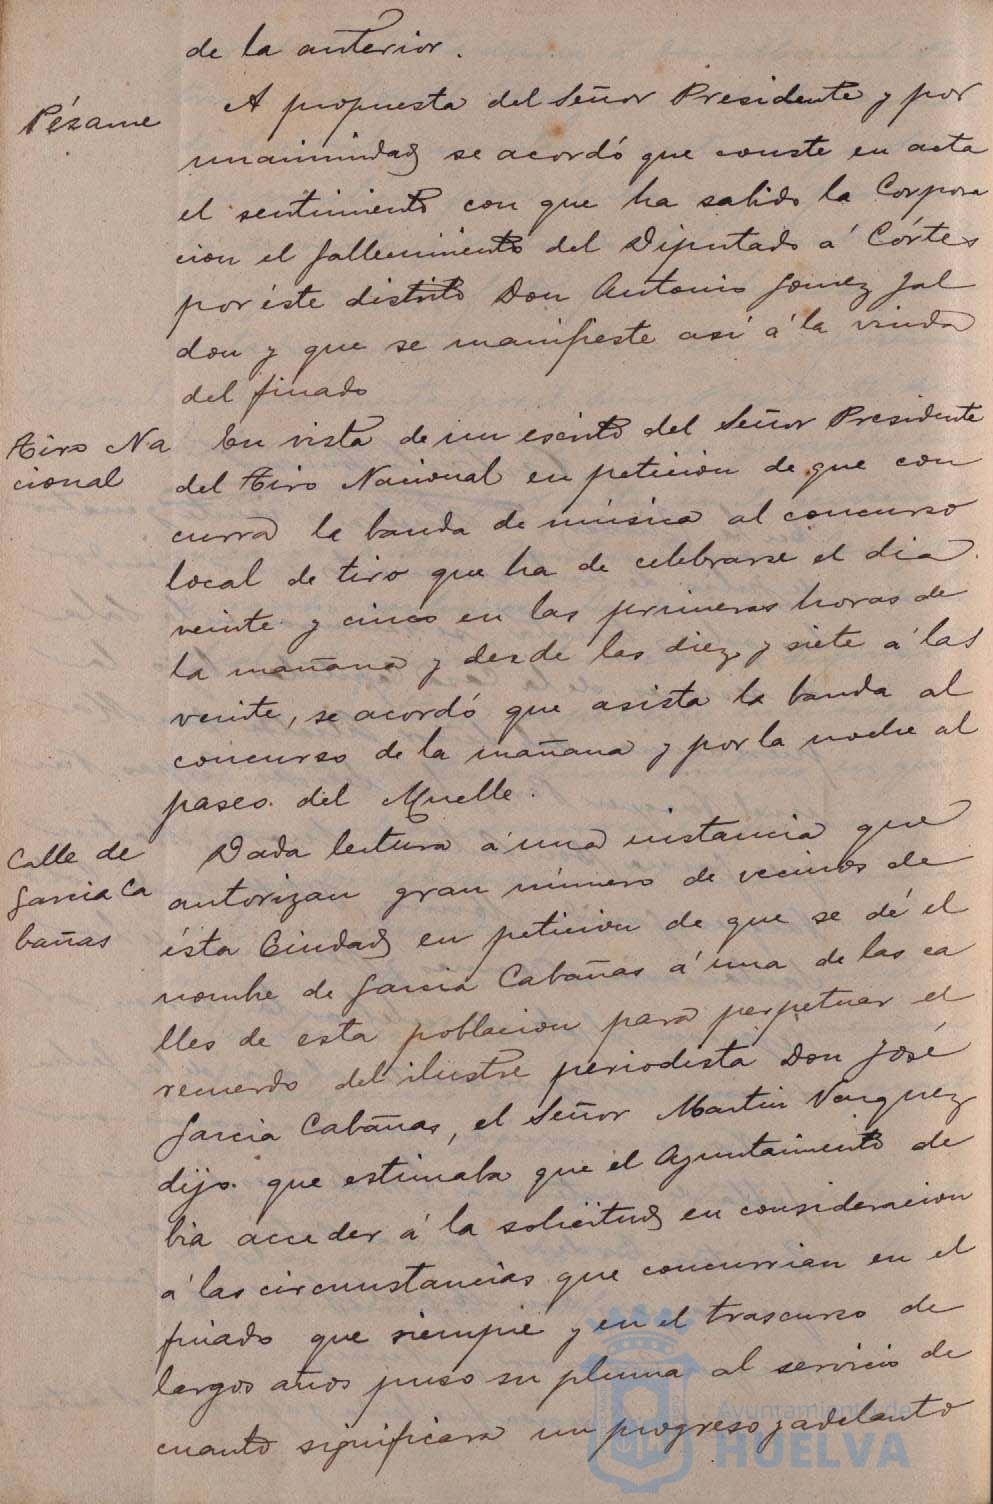 de la anterior.
Pésame
A propuesta del Señor Presidente y por
unanimidad se acordó que conste en acta
el sentimiento con que ha sabido la Corpora
cion el fallecimiento del Diputado á Córtes
por éste distrito Don Antonio Gomez Jal
don y que se manifieste asi á la viuda
del finado
Tiro Na
cional
En vista de un escrito del Señor Presidente
del Tiro Nacional en peticion de que con
curra la banda de música al concurso
local de tiro que ha de celebrarse el dia
veinte y cinco en las primeras horas de
la mañana y desde las diez y siete á las
veinte, se acordó que asista la banda al
concurso de la mañana y por la noche al
paseo del Muelle.
Calle de
Garcia Ca
bañas
Dada lectura á una instancia que
autorizan gran número de vecinos de
ésta Ciudad en peticion de que se dé el
nombre de Garcia Cabañas á una de las ca
lles de esta poblacion para perpetuar el
recuerdo del ilustre periodista Don José
Garcia Cabañas, el Señor Martin Vazquez
dijo que estimaba que el Ayuntamiento de
bia acceder á la solicitud en consideracion
á las circunstancias que concurrian en el
finado que siempre y en el trascurso de
largos años puso su pluma al servicio de
cuanto significara un progreso y adelanto
Ayuntamiento de
HUELVA